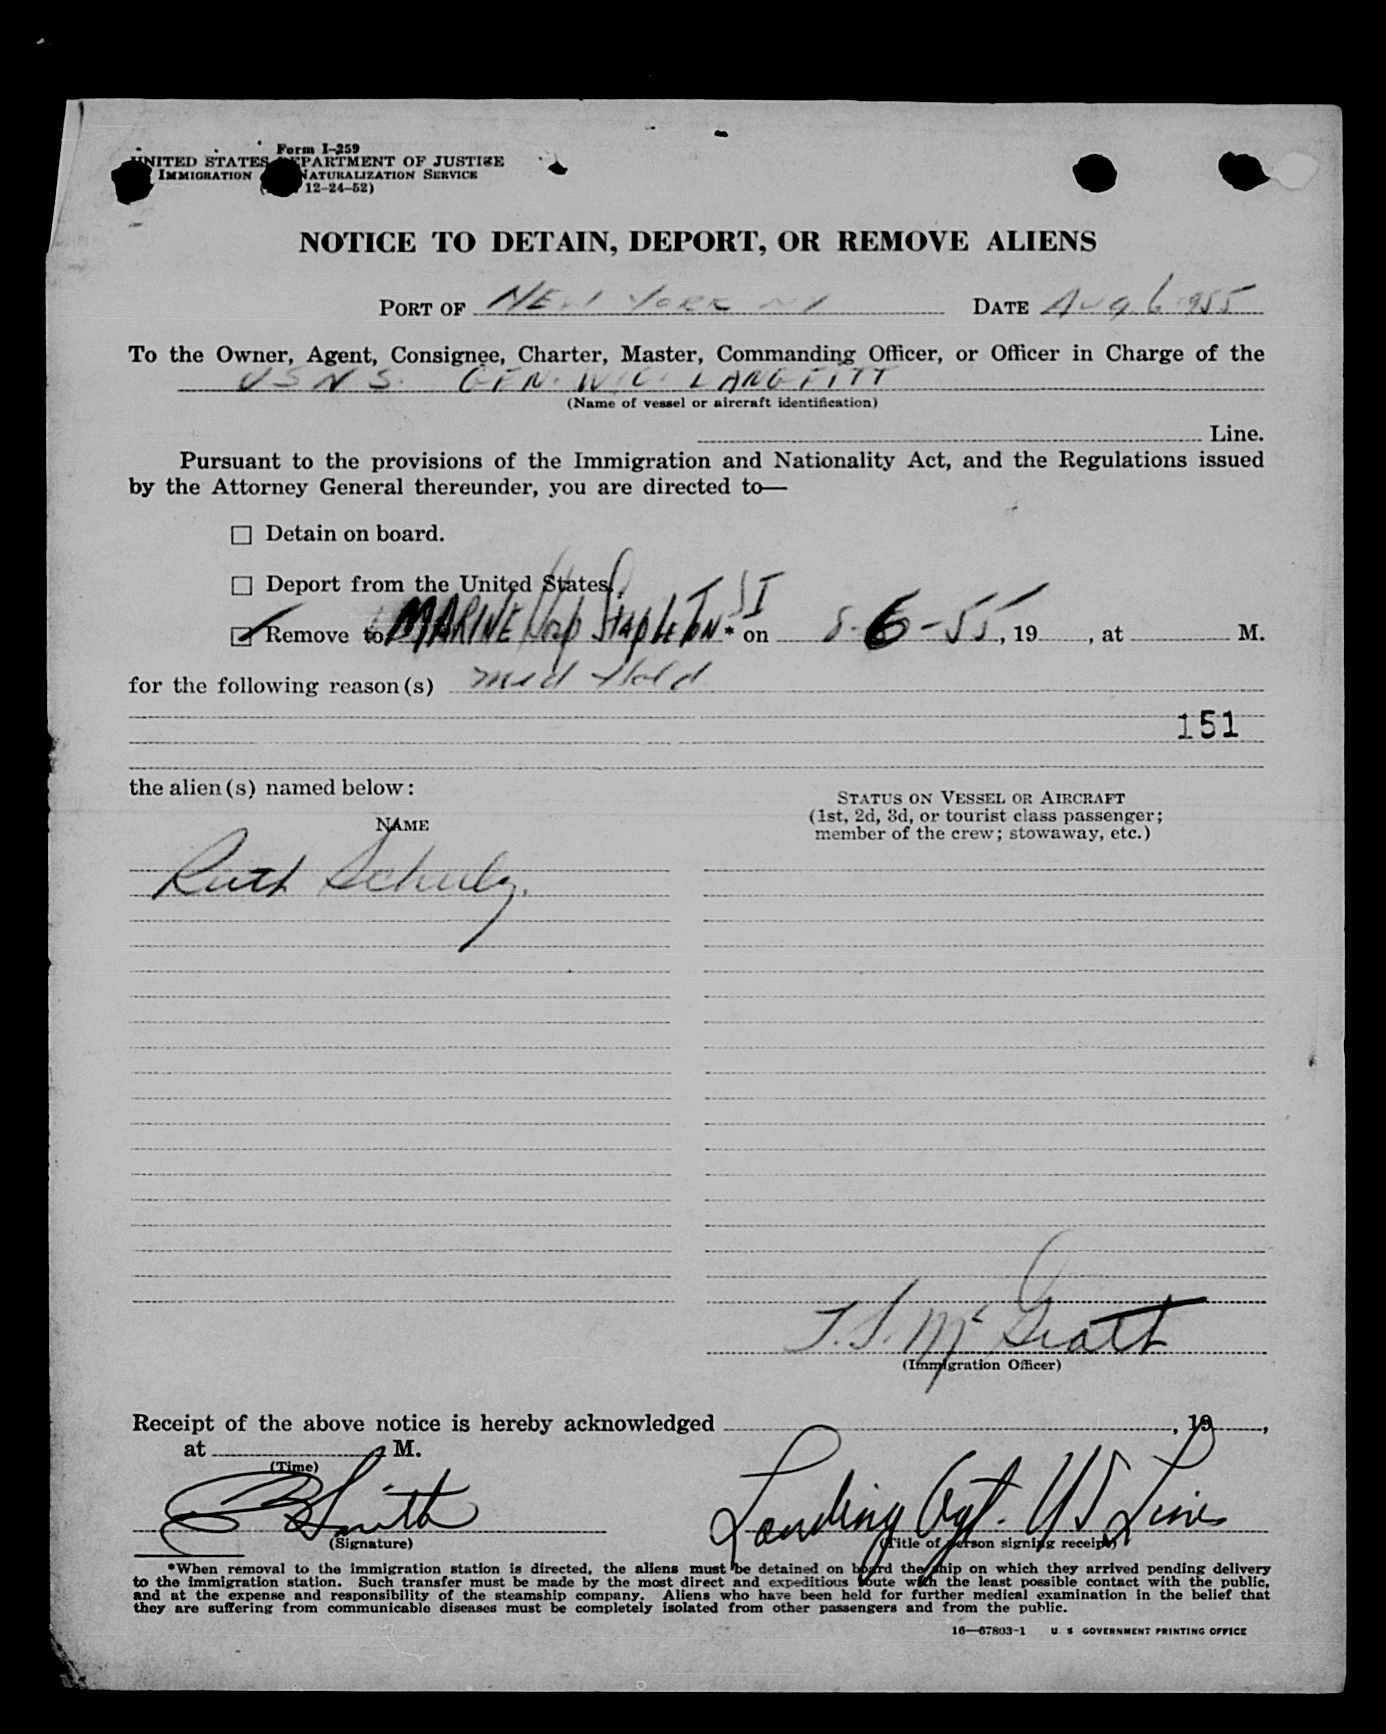 Form I-259
UNITED STATES DEPARTMENT OF JUSTICE
IMMIGRATION NATURALIZATION SERVICE
12-24-52)
NOTICE TO DETAIN, DEPORT, OR REMOVE ALIENS
PORT OF NEW YORK NY DATE Aug 6 1955
To the Owner, Agent, Consignee, Charter, Master, Commanding Officer, or Officer in Charge of the
USNS. GEN. W.C. LANGFITT
(Name of vessel or aircraft identification)
Line.
Pursuant to the provisions of the Immigration and Nationality Act, and the Regulations issued
by the Attorney General thereunder, you are directed to—
Detain on board.
Deport from the United States.
Remove to MARINE Hosp Stapleton SI * on 8-6-55, 19 , at M.
for the following reason(s) Med Hold
151
the alien(s) named below:
NAME
STATUS ON VESSEL OR AIRCRAFT
(1st, 2d, 3d, or tourist class passenger;
member of the crew; stowaway, etc.)
Ruth Schulz.
(Immigration Officer)
Receipt of the above notice is hereby acknowledged , 19 ,
at M.
(Time)
Smith Landing Agt. US Lines
(Signature) (Title of person signing receipt)
*When removal to the immigration station is directed, the aliens must be detained on board the ship on which they arrived pending delivery
to the immigration station. Such transfer must be made by the most direct and expeditious route with the least possible contact with the public,
and at the expense and responsibility of the steamship company. Aliens who have been held for further medical examination in the belief that
they are suffering from communicable diseases must be completely isolated from other passengers and from the public.
16—67803-1 U S GOVERNMENT PRINTING OFFICE